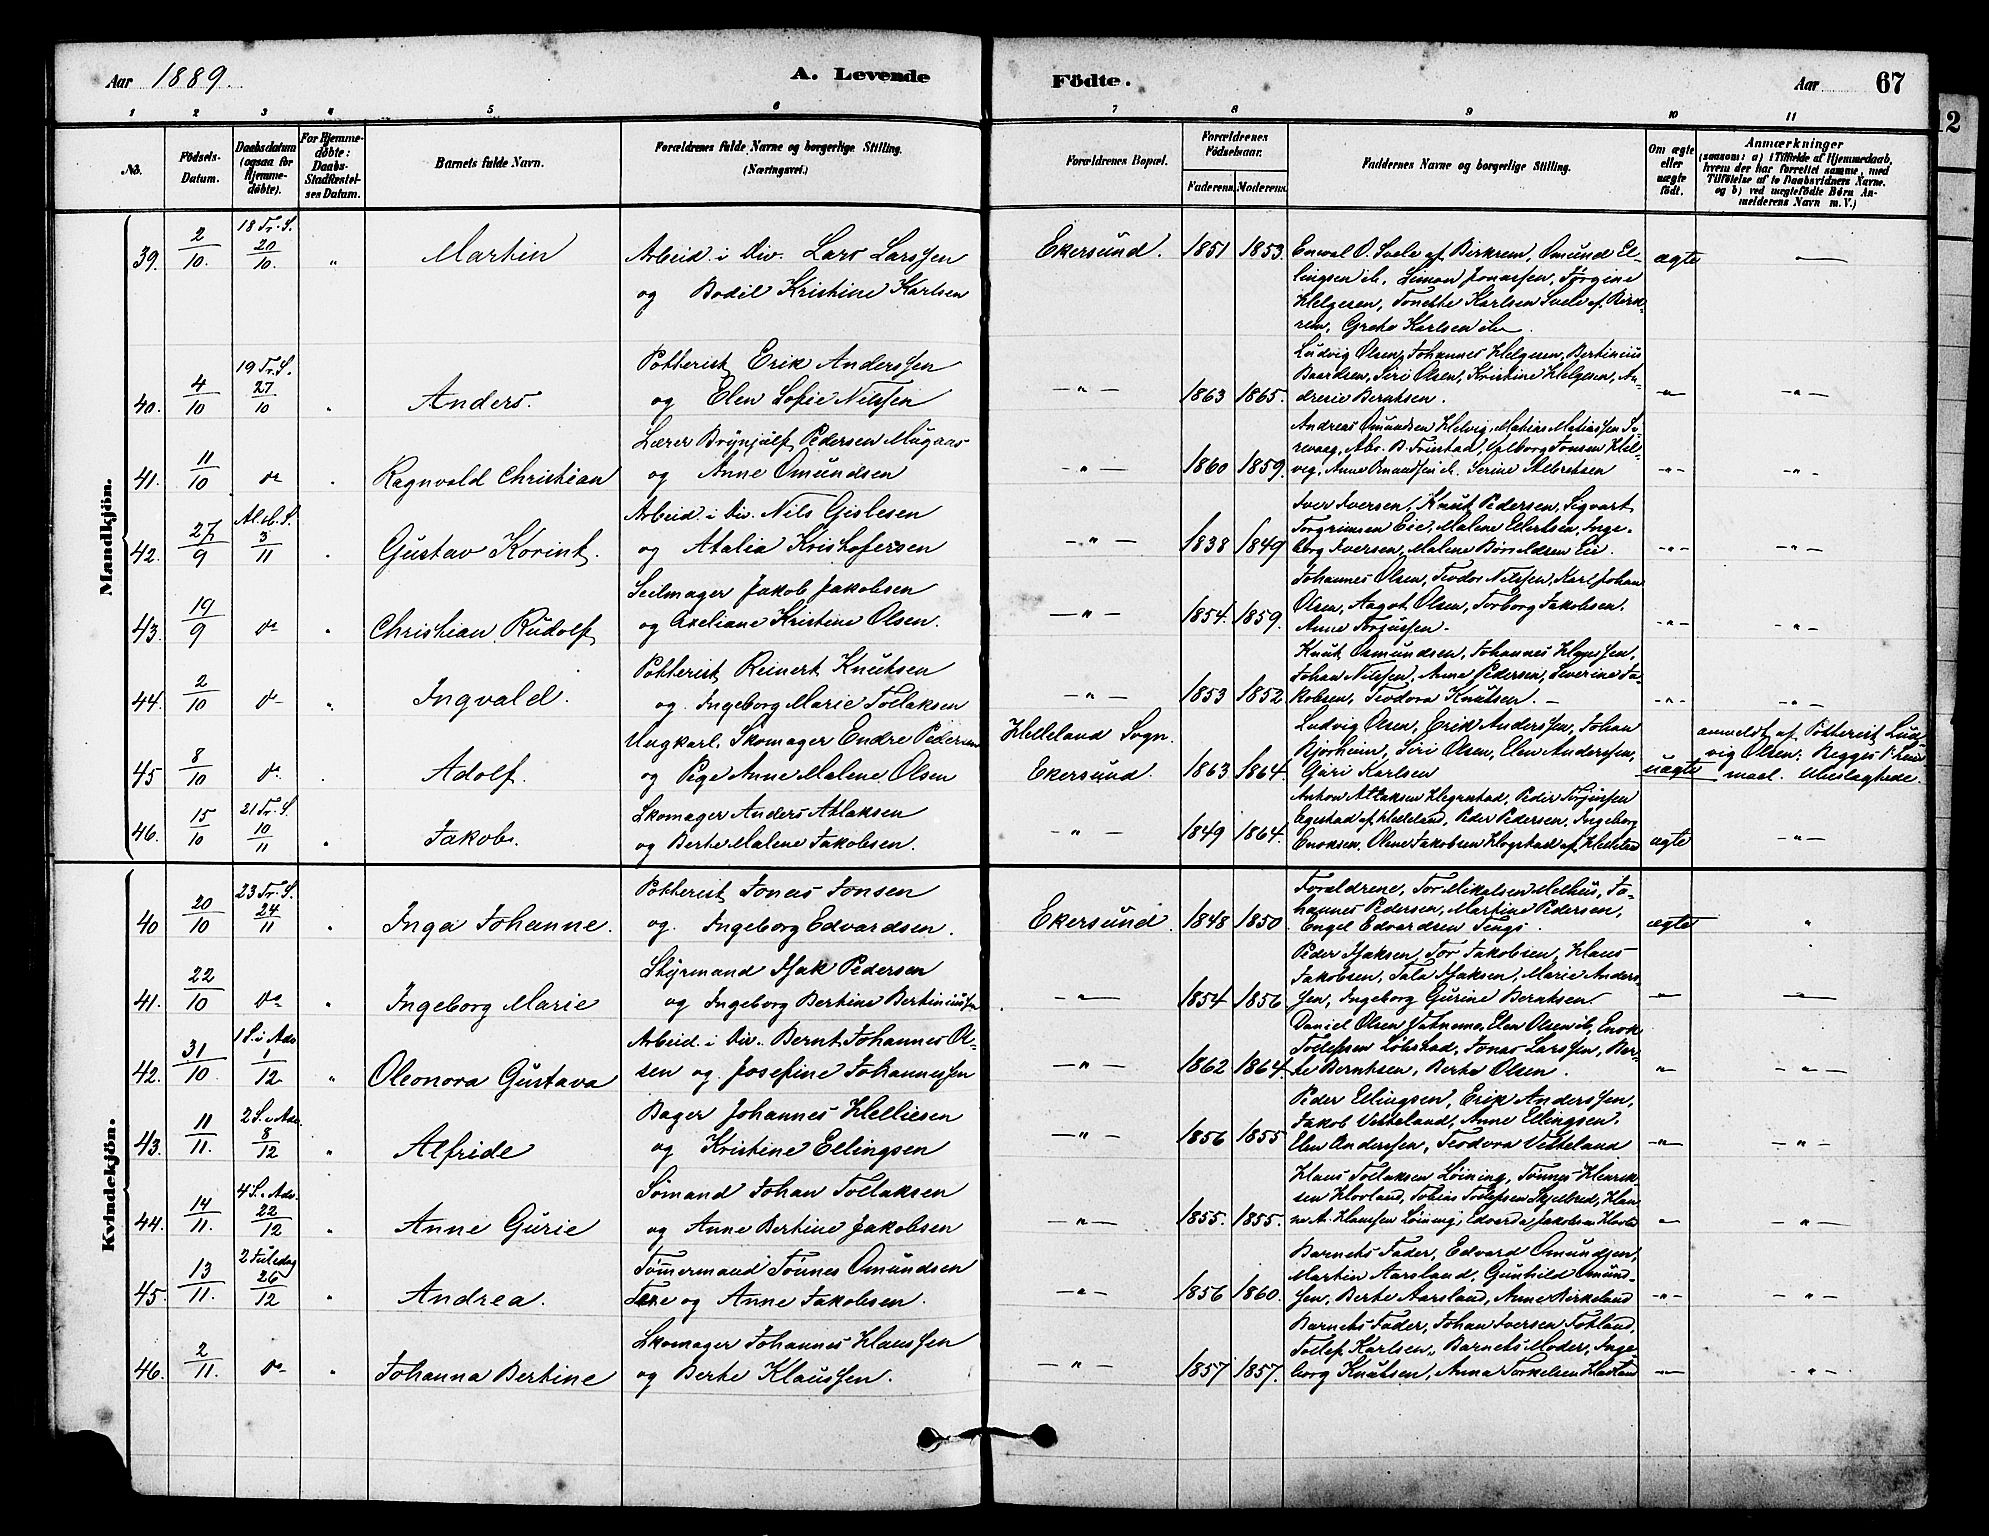 Aar 1889.
A. Levende
Födte.
Aar
67
12
1 2 3 4 5 6 7 8 9 10 11
No.
Födsels-Datum.
Daabsdatum (ogsaa for Hjemme-döbte).
For Hjemme-döbte: Daabs-Stadfæstel-ses Datum.
Barnets fulde Navn.
Forældrenes fulde Navne og borgerlige Stilling.
(Næringsvei.)
Forældrenes Bopæl.
Forældrenes Födselsaar.
Faderens. Moderens.
Faddernes Navne og borgerlige Stilling.
Om ægte eller uægte födt.
Anmærkninger
(saasom: a) i Tilfælde af Hjemmedaab,
hvem der har forrettet samme, med
Tilföielse af to Daabsvidners Navne.
og b) ved uægtefödte Börn An-
melderens Navn m. V.)
Mandkjön.
39. 2/10. 18 Tr. S. 20/10. " Martin
Arbeid. i Div. Lars Larssen
og Bodil Kristine Karlsen
Ekersund. 1851 1853.
Omund El-
lingsen ib, Simon Jonassen, Jørgine
Helgesen, Tonette Karlsen Svele af Birk-
rem, Grethe Karlsen ib.
ægte —
40. 4/10 19 Tr. S. 27/10 " Anders.
Potterist Erik Anderssen
og Elen Sofie Nilssen
— " — 1863 1865.
Ludvig Olsen, Johannes Helgesen, Bertinius
Baardsen, Siri Olsen, Kristine Helgesen, An-
drerie Berntsen.
— " — — " —
41. 11/10 do " Ragnvald Christian
Lærer Brynjulf Pedersen Mugaas
og Anne Omundsen
— " — 1860 1859.
Andreas Omundsen Helvig, Matias Matiassen
vig, Anne Omundsen ib. Serine
— " — — " —
42. 27/9 3/11 " Gustav Korint.
Arbeid. i Div. Nils Gislesen
og Atalia Kristofersen
— " — 1838 1849
Iver Iversen, Knut Pedersen, Sigvart
Torgrimsen Eie, Malene Ellertsen, Inge-
borg Iversen, Malene Eie.
— " — — " —
43. 19/9 do " Christian Rudolf
Seilmager Jakob Jakobsen
og Axeliane Kristine Olsen.
— " — 1854. 1859.
Johannes Olsen, Teodor Nilssen, Karl Johan
Olsen, Aagot Olsen, Torborg Jakobsen,
Anne Torjussen.
— " — — " —
44. 2/10 do " Ingvald.
Potterist Reinert Knutsen
og Ingeborg Marie Tollaksen
— " — 1853 1852
Knut Osmundsen, Johannes
Johan Nilssen, Anne Pedersen, Severine Ja-
kobsen, Teodora Knutsen. —
— " — — " —
45 8/10 do Adolf.
Ungkarl, Skomager Endre Pedersen
og Pige Anne Malene Olsen
Helleland Sogn.
Ekersund. 1863 1864.
Ludvig Olsen, Erik Anderssen, Johan
Bjorheim, Siri Olsen, Elen Anderssen,
Guri Karlsen
uægte
anmeldt af Potterist Lud-
vig Olsen; Begges 1ste Leier-
maal. Ubeslægtede.
46. 15/10 21 Tr. S. 10/11 " Jakob.
Skomager Anders Atlaksen
og Berte Malene Jakobsen.
— " — 1849 1864.
Anton Atlaksen Hegrestad, Peder Torjussen
Egestad af Helleland, Peder Pedersen, Ingeborg
Enoksen, Oline Jakobsen af Helleland
ægte — " —
Kvindekjön.
40 20/10 23 Tr. S. 24/11 " Inga Johanne.
Potterist Jonas Jonsen
og Ingeborg Edvardsen.
Ekersund. 1848 1850
Forældrene, Tor Mikalsen Melhus, Jo-
hannes Pedersen, Martine Pedersen,
Engel Edvardsen Tengs.
ægte "
41. 22/10 do " Ingeborg Marie
Styrmand Isak Pedersen
og Ingeborg Bertine Bertiniussen
— " — 1854 1856
Peder Isaksen, Tor Jakobsen, Klaus
Jakobsen, Tala Isaksen, Marie Anders-
sen, Ingeborg Gurine Berntsen.
— " — — " —
42. 31/10 1 S. i Adv. 1/12 " Oleonora Gustava
Arbeid. i Div. Bernt Johannes Ol-
sen og Josefine Johannessen
— " — 1862 1864.
Daniel Olsen Elen Olsen ib, Enok
Tollefsen Jonas Larssen, Ber-
te Berntsen, Berte Olsen.
— " — — " —
43. 11/11. 2 S. i Adv. 8/12 " Alfride
Bager Johannes Helliesen
og Kristine Ellingsen
— " — 1856 1855
Peder Ellingsen, Erik Anderssen,
Jakob Vesheland, Anne Ellingsen,
Elen Anderssen, Teodora Vesheland
— " — — " —
44. 14/11. 4 S. i Adv. 22/12 " Anne Gurie
Sømand Johan Tollaksen
og Anne Bertine Jakobsen
— " — 1855. 1855.
Klaus Tollaksen Løining, Tønnes Henrik-
sen Hovland, Tobias Tollefsen
Løining, Edvarda Jakobsen
— " — — " —
45. 13/11. 2 Juledag 26/12 " Andrea.
Tømmermand Tønnes Omundsen
og Anne Jakobsen.
— " — 1856 1860.
Barnets Fader, Edvard Omundsen,
Martin Aarsland, Gunhild Omund-
sen, Berte Aarsland, Anne Birkeland
— " — — " —
46. 2/11. do " Johanna Bertine
Skomager Johannes Klaussen
og Berte Klaussen.
— " — 1857 1857.
Barnets Fader, Johan Iversen Fotland,
Tollef Karlsen, Barnets Moder, Inge-
borg Knutsen, Anna Torkelsen
— " — — " —